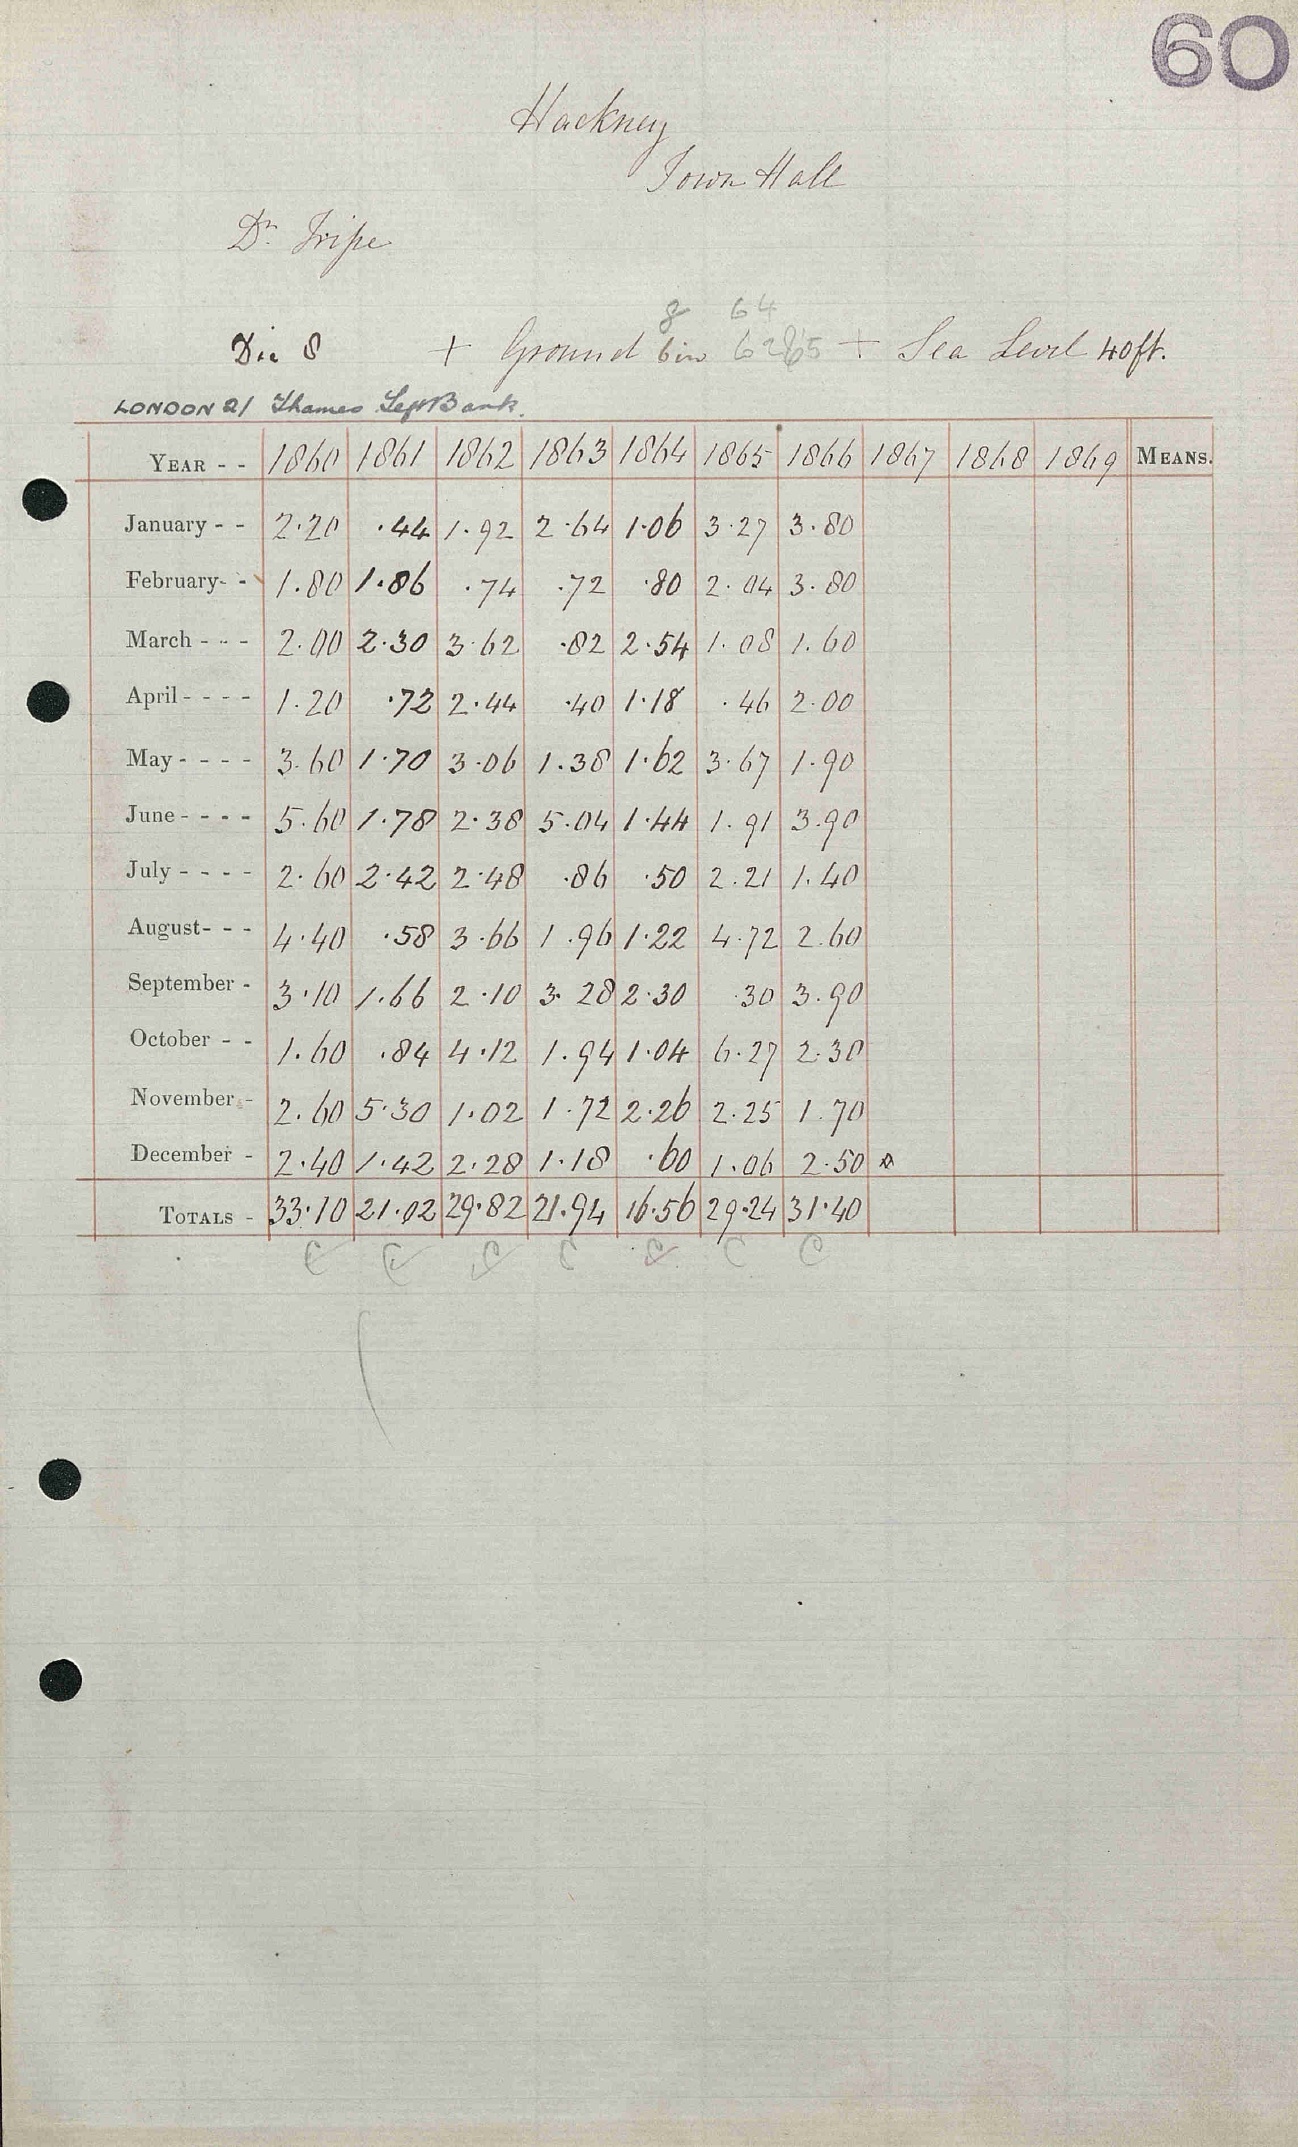 60
Hackney
Town Hall
Dr. Tripe
8 64
Dia 8 + Ground 6in 62 65 + Sea Level 40ft.
LONDON 2/ Thames Left Bank.
YEAR - - 1860 1861 1862 1863 1864 1865 1866 1867 1868 1869 MEANS.
January - - 2.20 .44 1.92 2.64 1.06 3.27 3.80
February - - 1.80 1.86 .74 .72 .80 2.04 3.80
March - - - 2.00 2.30 3.62 .82 2.54 1.08 1.60
April - - - - 1.20 .72 2.44 .40 1.18 .46 2.00
May - - - - 3.60 1.70 3.06 1.38 1.62 3.67 1.90
June - - - - 5.60 1.78 2.38 5.04 1.44 1.91 3.90
July - - - - 2.60 2.42 2.48 .86 .50 2.21 1.40
August - - - 4.40 .58 3.66 1.96 1.22 4.72 2.60
September - 3.10 1.66 2.10 3.28 2.30 .30 3.90
October - - 1.60 .84 4.12 1.94 1.04 6.27 2.30
November - 2.60 5.30 1.02 1.72 2.26 2.25 1.70
December - 2.40 1.42 2.28 1.18 .60 1.06 2.50
TOTALS - 33.10 21.02 29.82 21.94 16.56 29.24 31.40
C C C C C C C